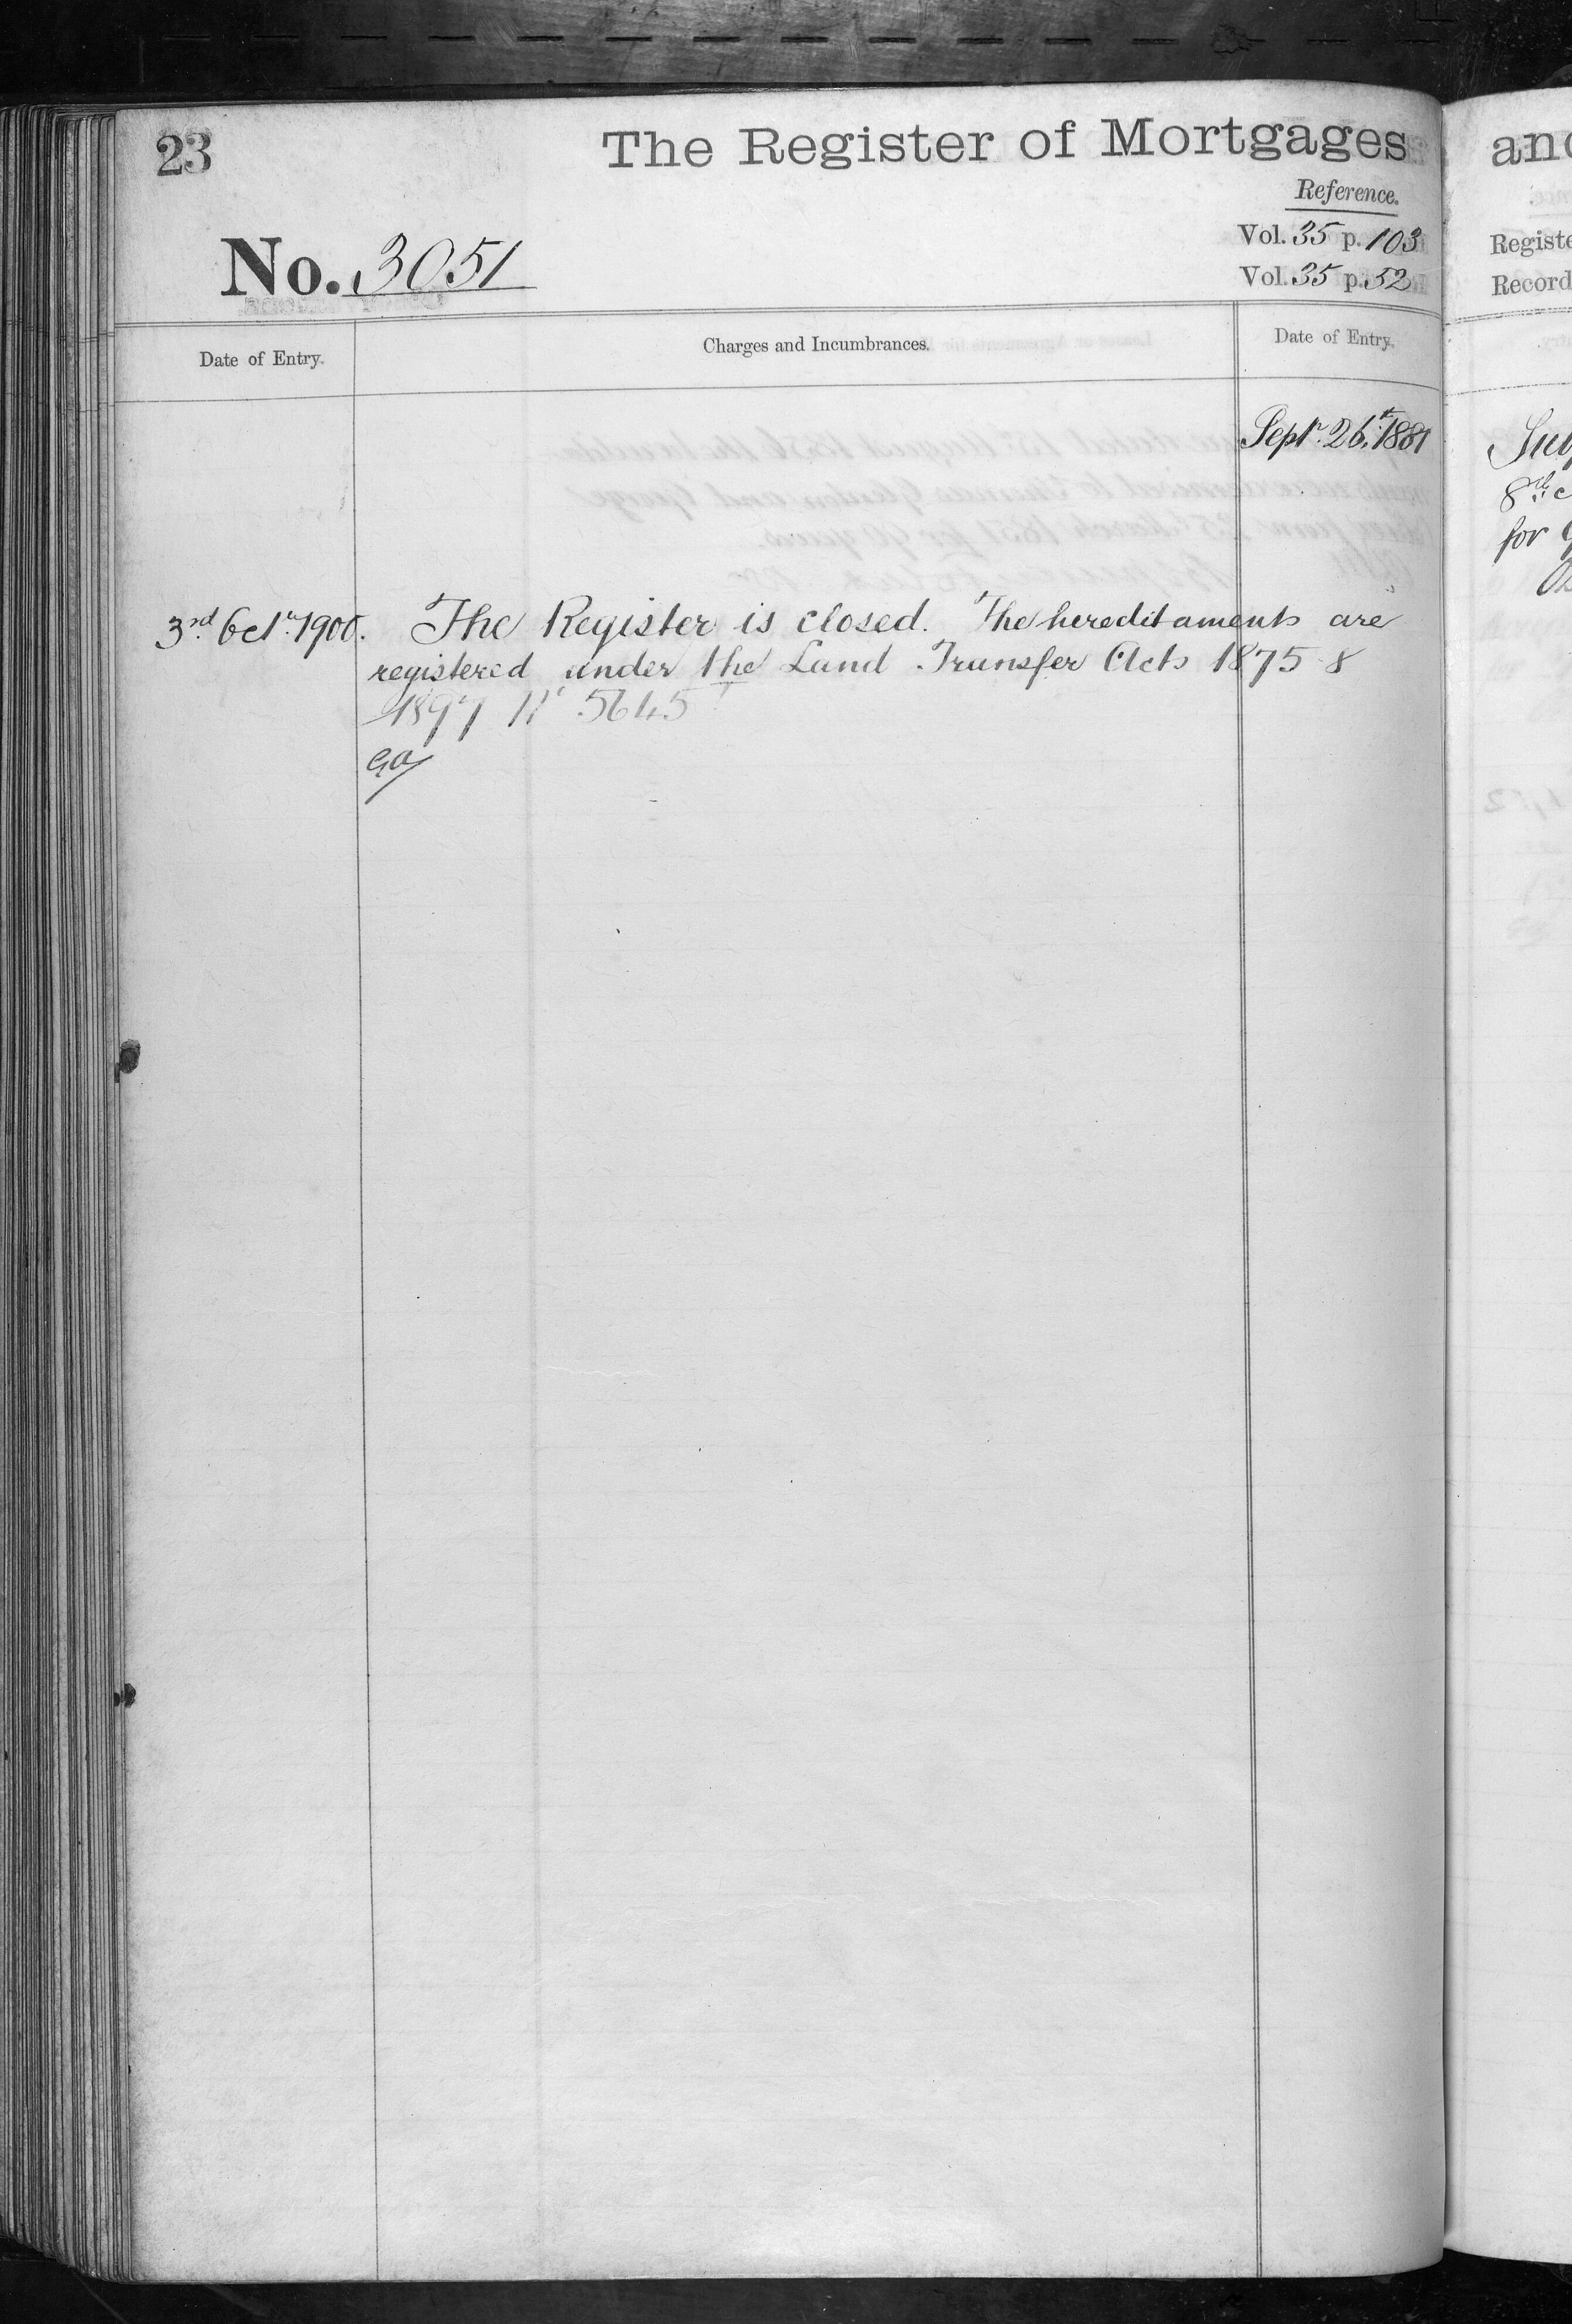 23
The Register of Mortgages
Reference.
No. 3051
Vol. 35 p. 103
Vol. 35 p. 52
Date of Entry.
Charges and Incumbrances.
Date of Entry.
Septr. 26th 1881
3rd Octr. 1900. The Register is closed. The hereditaments are
registered under the Land Transfer Acts 1875 &
1897 No 5645
and
Registe
Record
8th
for